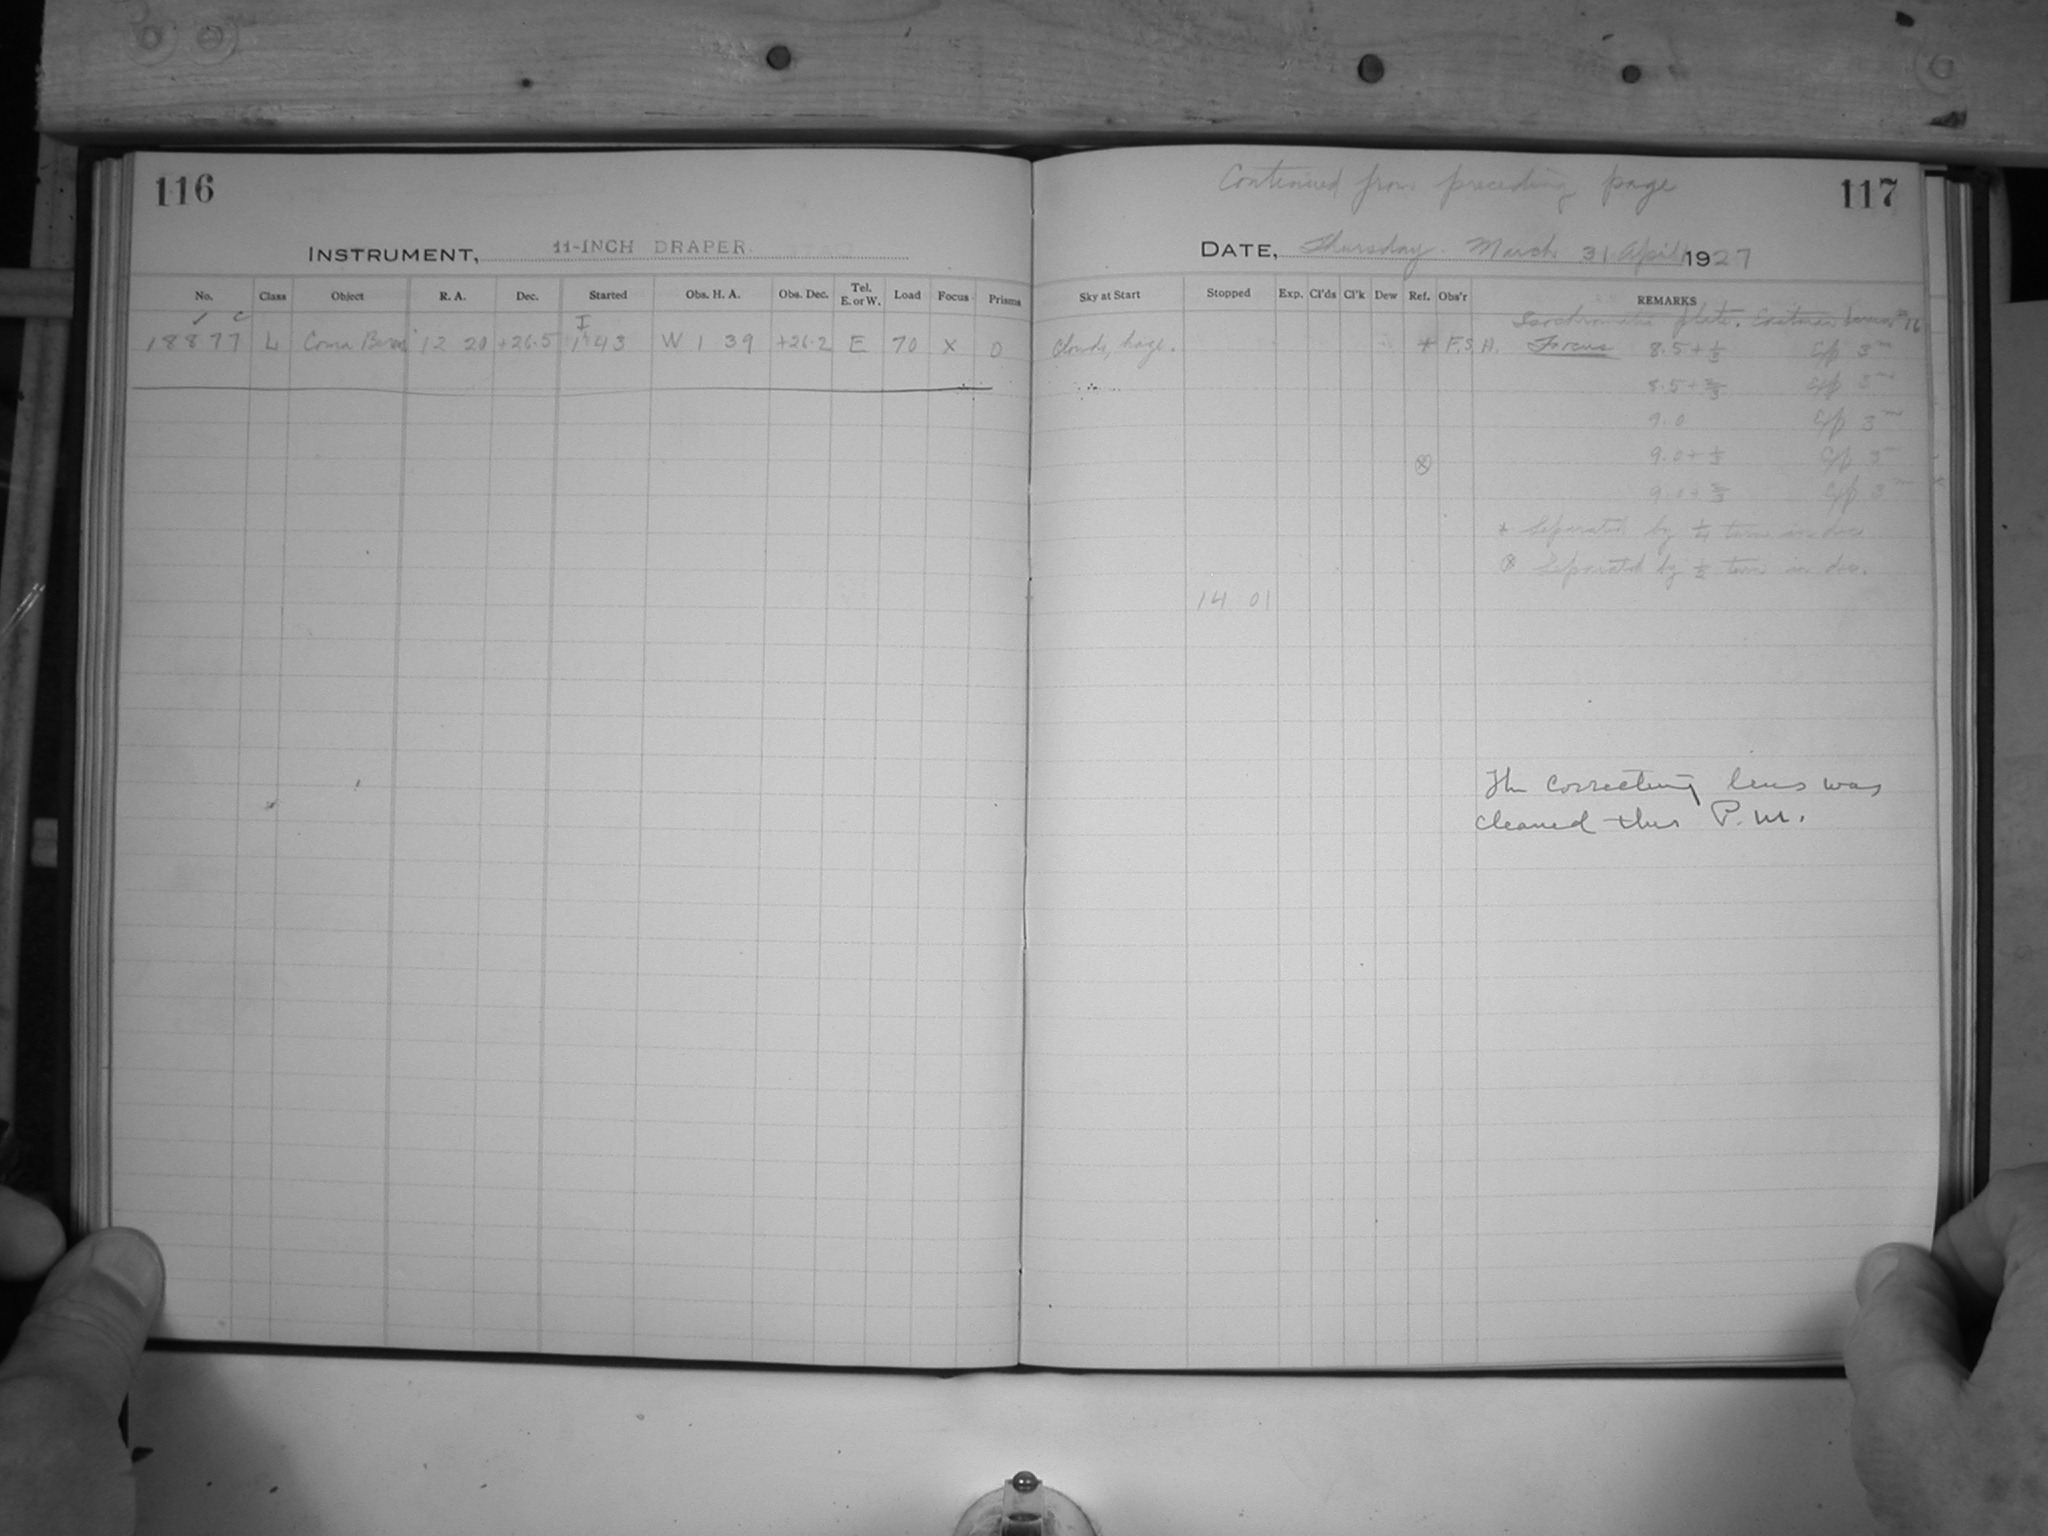 116
INSTRUMENT, 11-INCH DRAPER.
No. Class Object R. A. Dec. Started Obs. H. A. Obs. Dec. Tel. E. or W. Load Focus Prisms
✓ c I
18877 L Coma Beren 12 20 +26.5 1 43 W 1 39 +26.2 E 70 X 0
Continued from preceding page
117
DATE, Thursday. March 31 April 1 1927
Sky at Start Stopped Exp. Cl'ds Cl'k Dew Ref. Obs'r REMARKS
Isochromatic plate. Eastman
Clouds, haze. * F.S.H. Focus 8.5 + 1/3 Exp 3m
8.5 + 2/3 Exp 3m
9.0 Exp 3m
⊗ 9.0 + 1/3 Exp 3m
9.0 + 2/3 Exp 3m
* Separated by 1/4 turn in dec.
⊗ Separated by 1/2 turn in dec.
14 01
The correcting lens was
cleaned this P.M.